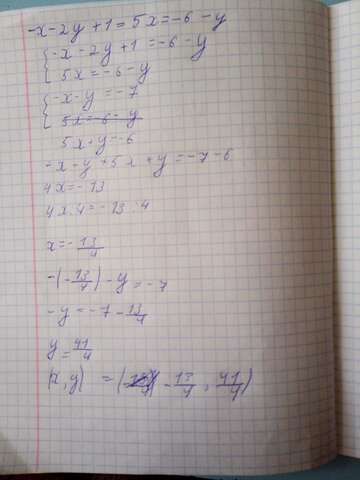 -x-2y+1=5x=-6-y
{-x-2y+1=-6-y
5x=-6-y
{-x-y=-7
5x=-6-y
5x+y=-6
-x-y+5x+y=-7-6
4x=-13
4x:4=-13:4
x=-13/4
-(-13/4)-y=-7
-y=-7-13/4
y=41/4
(x,y) =(-13/4, 41/4)